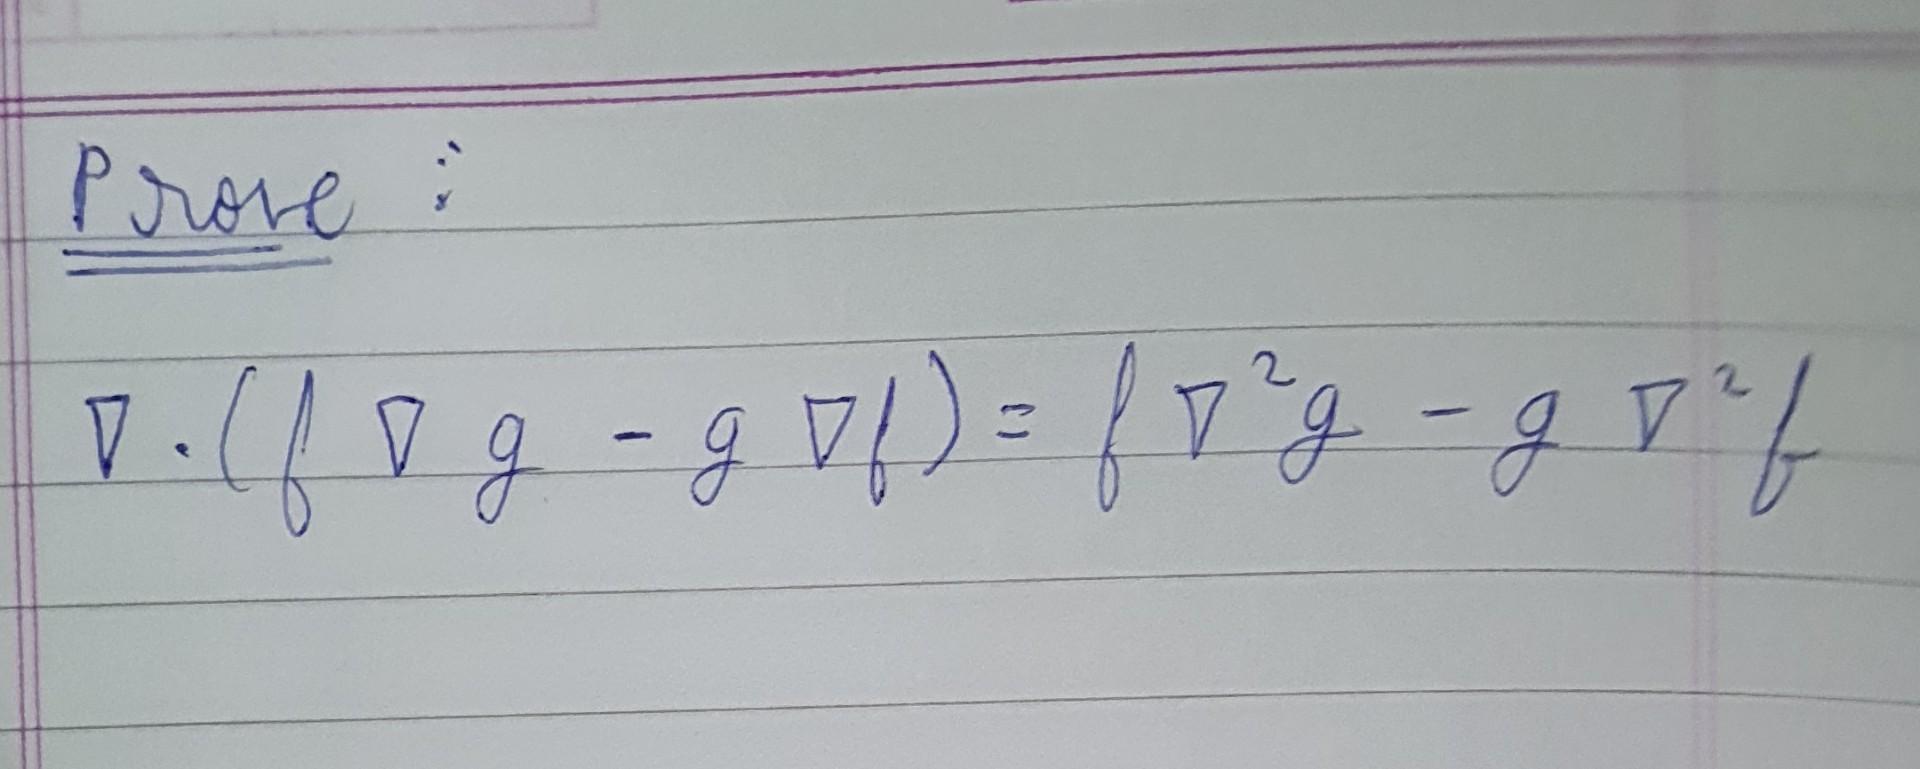 Prove :
∇ . (f ∇ g - g ∇f) = f ∇²g - g ∇²f